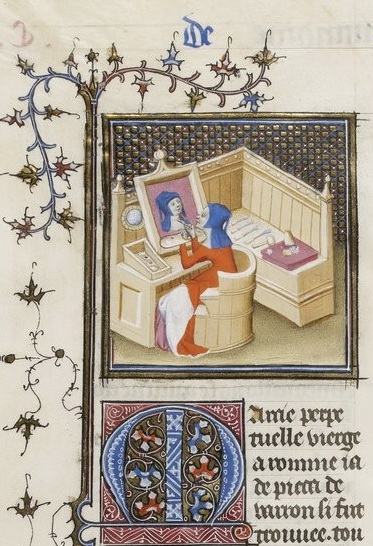 De
Marcie perpe
tuelle vierge
a romme ia
de pieca de
varon si fut
trouuee. tou